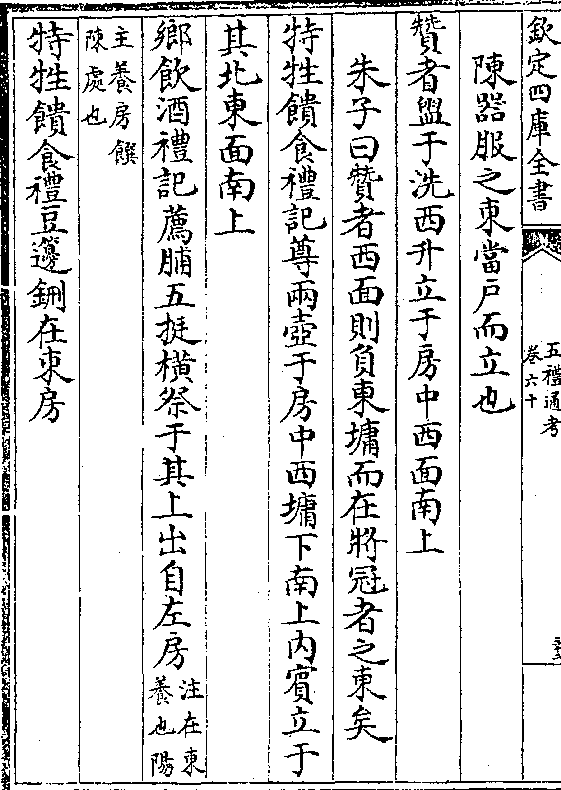 欽定四庫全書
五禮通考
卷六十
陳器服之東當戶而立也
贊者盥于洗西升立于房中西面南上
朱子曰贊者西面則負東墉而在將冠者之東矣
特牲饋食禮記尊兩壺于房中西墉下南上内賓立于
其北東面南上
鄉飲酒禮記薦脯五挺橫祭于其上出自左房
注在東
養也陽
主養房饌
陳處也
特牲饋食禮豆籩鉶在東房